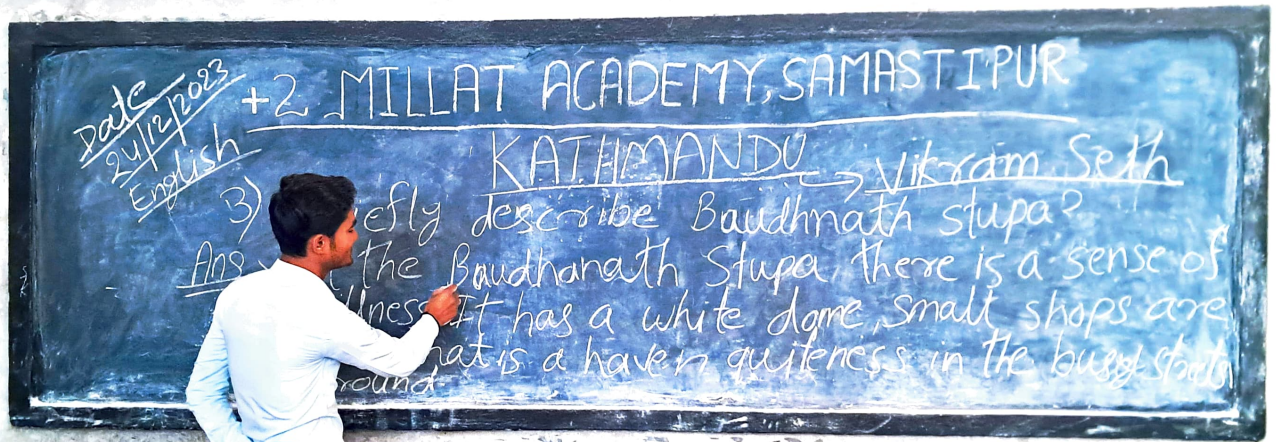 Date
24/12/2023
English
+2 MILLAT ACADEMY, SAMASTIPUR
KATHMANDU → Vikram Seth
3) efly describe Baudhnath stupa?
Ans the Baudhanath Stupa, there is a sense of
lness. It has a white dome, small shops are
hat is a haven quiteness in the busy streets
round.